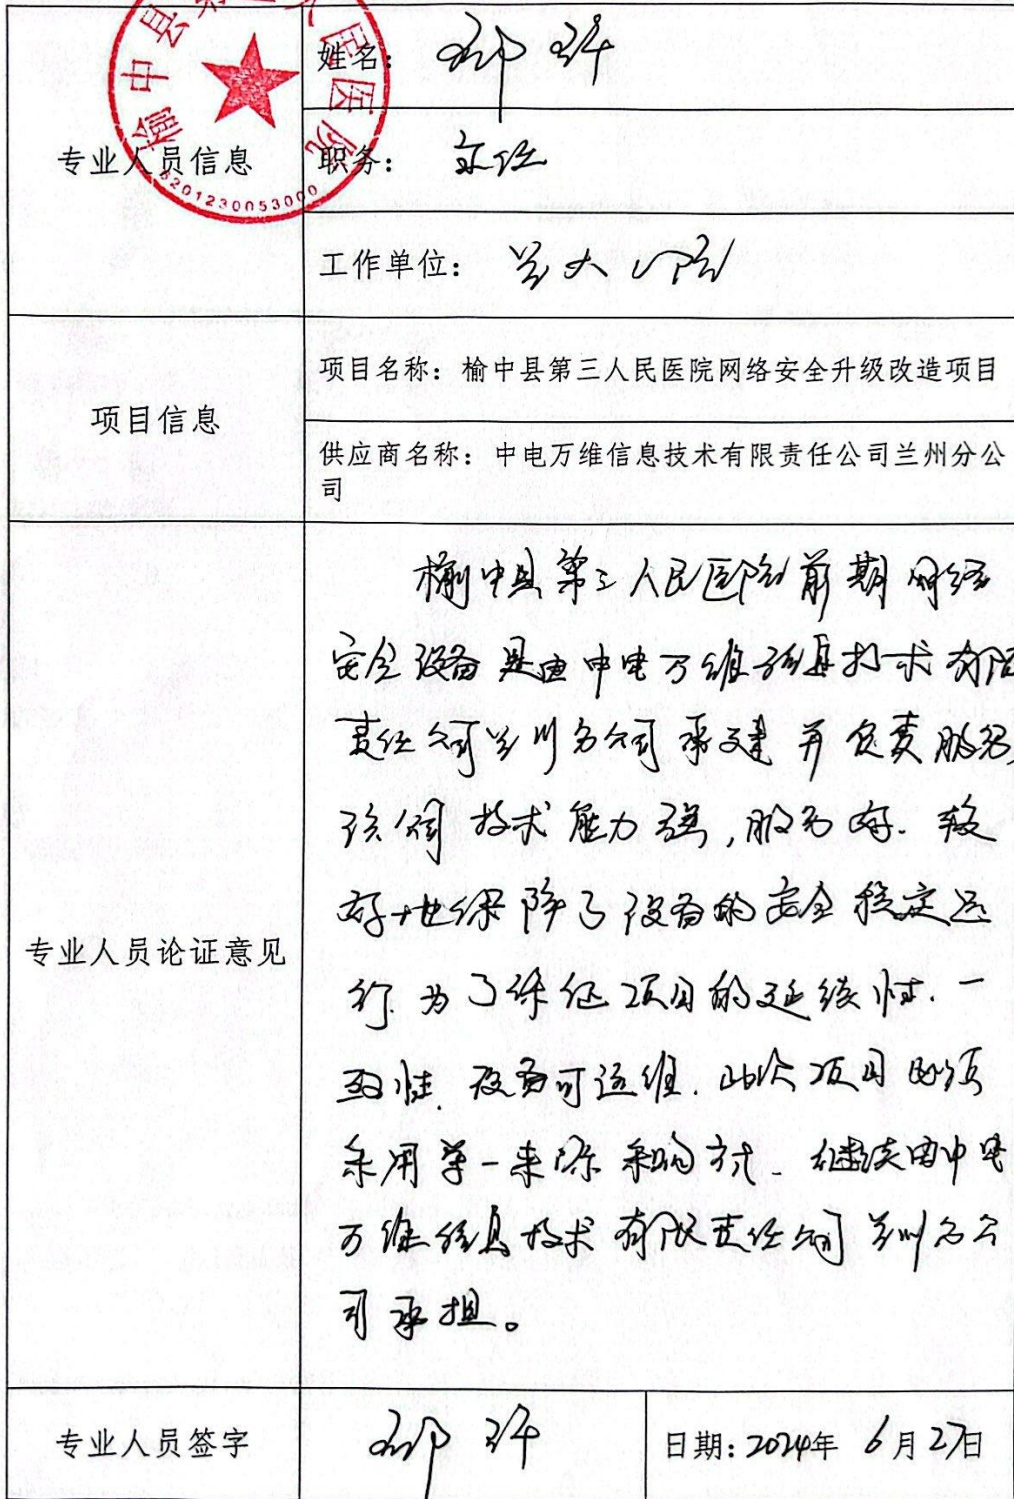 榆中县第三人民医院
6201230053000
专业人员信息
姓名：
职务：主任
工作单位：兰大一院
项目信息
项目名称：榆中县第三人民医院网络安全升级改造项目
供应商名称：中电万维信息技术有限责任公司兰州分公
司
专业人员论证意见
榆中县第三人民医院前期网络
安全设备是由中电万维信息技术有限
责任公司兰州分公司承建并负责服务,
该公司技术能力强,服务好.较
好地保障了设备的安全稳定运
行.为了保证项目的延续性.一
致性.设备可运维.此次项目必须
采用单一来源采购方式.继续由中电
万维信息技术有限责任公司兰州分公
司承担。
专业人员签字
日期:2024年6月27日